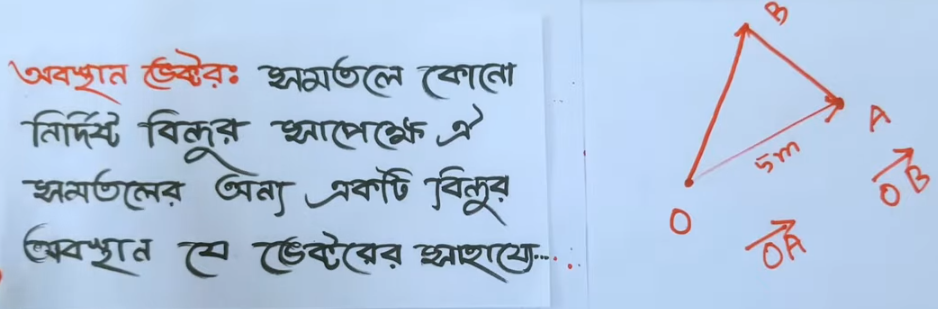 অবস্থান ভেক্টর: সমতলে কোনো
নির্দিষ্ট বিন্দুর সাপেক্ষে ঐ
সমতলের অন্য একটি বিন্দুর
অবস্থান যে ভেক্টরের সাহায্যে.....
B
A
5m
O
OA
OB